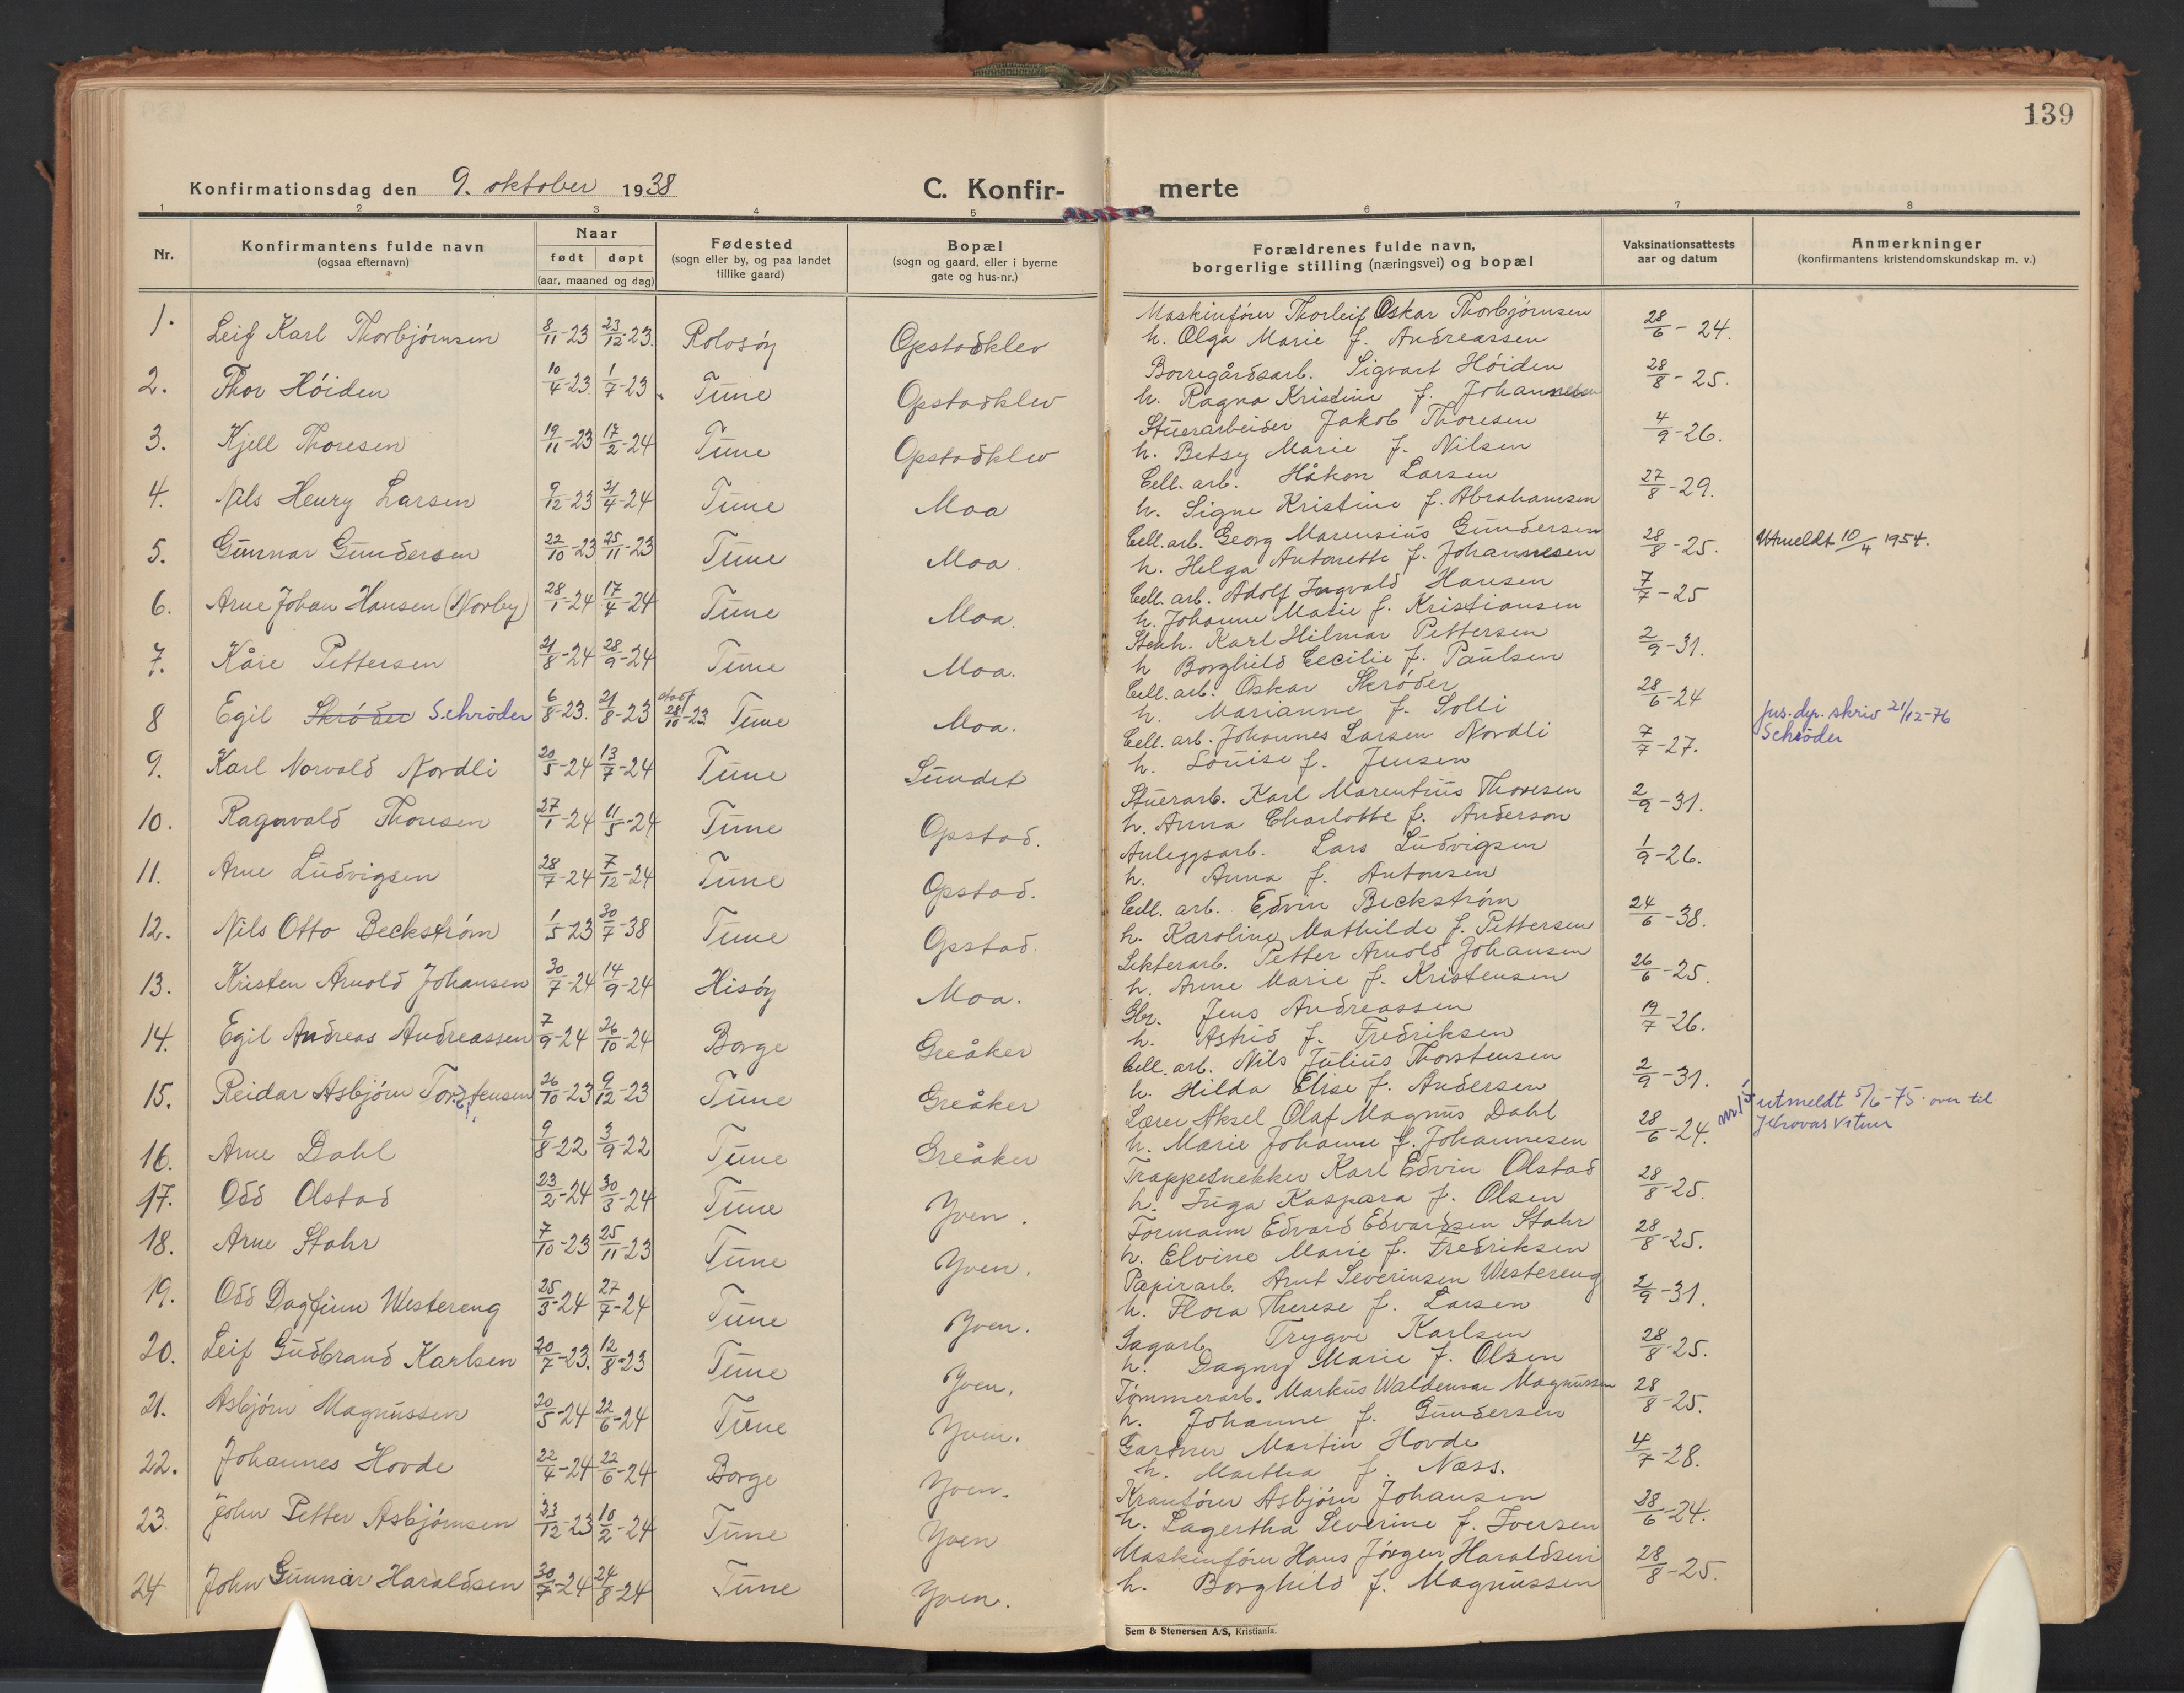 139
Konfirmationsdag den 9. oktober 1938
C. Konfir- merte
1 2 3 4 5 6 7 8
Nr.
Konfirmantens fulde navn
(ogsaa efternavn)
Naar
født døpt
(aar, maaned og dag)
Fødested
(sogn eller by, og paa landet
tillike gaard)
Bopæl
(sogn og gaard, eller i byerne
gate og hus-nr.)
Forældrenes fulde navn,
borgerlige stilling (næringsvei) og bopæl
Vaksinationsattests
aar og datum
Anmerkninger
(konfirmantens kristendomskundskap m. v.)
1. Leif Karl Thorbjørnsen 8/11-23 23/12-23. Rolvsøy Opstadklev Maskinfører Thorleif Oskar Thorbjørnsen 28/6-24.
h. Olga Marie f. Andreassen
2. Thor Høiden 10/4-23. 1/7-23 Tune Opstadklev Borregårdsarb. Sigvart Høiden 28/8-25.
h. Ragna Kristine f. Johannessen
3. Kjell Thoresen 19/11-23 17/2-24 Tune Opstadklev Stuerarbeider Jakob Thoresen 4/9-26.
h. Betsy Marie f. Nilsen
4. Nils Henry Larsen 9/12-23 21/4-24 Tune Moa Cell. arb. Håkon Larsen 27/8-29.
h. Signe Kristine f. Abrahamsen
5. Gunnar Gundersen 22/10-23 25/11-23 Tune Moa. Cell. arb. Georg Marensius Gundersen 28/8-25. Utmeldt 10/4 1954.
h. Helga Antonette f. Johannesen
6. Arne Johan Hansen (Norby) 28/1-24 17/4-24 Tune Moa. Cell. arb. Adolf Ingvald Hansen 7/7-25
h. Johanne Marie f. Kristiansen
7. Kåre Pettersen 21/8-24 28/9-24 Tune Moa. Stenh. Karl Hilmar Pettersen 2/9-31.
h Borghild Cecilie f. Paulsen
8 Egil Skrøder Schrøder 6/8-23. 21/8-23 stadf. 28/10-23 Tune Moa. Cell. arb. Oskar Skrøder 28/6-24 Jus.dep. skriv 21/12-76
h. Marianne f. Solli Schrøder
9. Karl Norvald Nordli 20/5-24 13/7-24 Tune Sundet Cell. arb. Johannes Larsen Nordli 7/7-27.
h. Louise f. Jensen
10. Ragnvald Thoresen 27/1-24 11/5-24 Tune Opstad. Stuerarb. Karl Marentius Thoresen 2/9-31.
h. Anna Charlotte f. Anderson
11. Arne Ludvigsen 28/7-24 7/12-24 Tune Opstad. Anleggsarb. Lars Ludvigsen 1/9-26.
h. Anna f. Antonsen
12. Nils Otto Beckstrøm 1/5-23 30/7-38 Tune Opstad. Cell. arb. Edvin Beckstrøm 24/6-38.
h. Karoline Mathilde f. Pettersen
13. Kristen Arnold Johansen 30/7-24 14/9-24 Hisøy Moa. Sikterarb. Petter Arnold Johansen 26/6-25.
h. Anne Marie f. Kristensen
14. Egil Andreas Andreassen 7/9-24 26/10-24 Borge Greåker Gbr. Jens Andreassen 19/7-26.
h. Astrid f. Fredriksen
15. Reidar Asbjørn Torstensen 26/10-23 9/12-23 Tune Greåker Cell. arb. Nils Julius Thorstensen 2/9-31. nr 15 utmeldt 5/6-75 over til
h. Hilda Elise f. Andersen Jehovas Vitner
16. Arne Dahl 9/8-22 3/9-22 Tune Greåker Lærer Aksel Olaf Magnus Dahl 28/6-24.
h. Marie Johanne f. Johannesen
17. Odd Olstad 23/2-24 30/3-24 Tune Yven. Trappesnekker Karl Edvin Olstad 28/8-25.
h. Inga Kaspara f. Olsen
18. Arne Stahr 7/10-23 25/11-23 Tune Yven. Formann Edvard Edvardsen Stahr 28/8-25.
h. Elvine Marie f. Fredriksen
19. Odd Dagfinn Westereng 25/3-24 27/4-24 Tune Yven. Papirarb. Arnt Severinsen Westereng 2/9-31.
h. Flora Therese f. Larsen
20. Leif Gudbrand Karlsen 20/7-23. 12/8-23 Tune Yven. Sagarb. Trygve Karlsen 28/8-25.
h. Dagny Marie f. Olsen
21. Asbjørn Magnussen 20/5-24 22/6-24 Tune Yven. Tømmerarb. Markus Waldemar Magnussen 28/8-25.
h. Johanne f. Gundersen
22. Johannes Hovde 22/4-24 22/6-24 Borge Yven. Gartner Martin Hovde 4/7-28.
h. Martha f. Næss.
23. John Petter Asbjørnsen 23/12-23 10/2-24 Tune Yven Kranfører Asbjørn Johansen 28/6-24.
h. Lagertha Severine f. Iversen
24 John Gunnar Haraldsen 30/7-24 24/8-24 Tune Yven. Maskinfører Hans Jørgen Haraldsen 28/8-25.
h. Borghild f. Magnussen
Sem & Stenersen A/S, Kristiania.